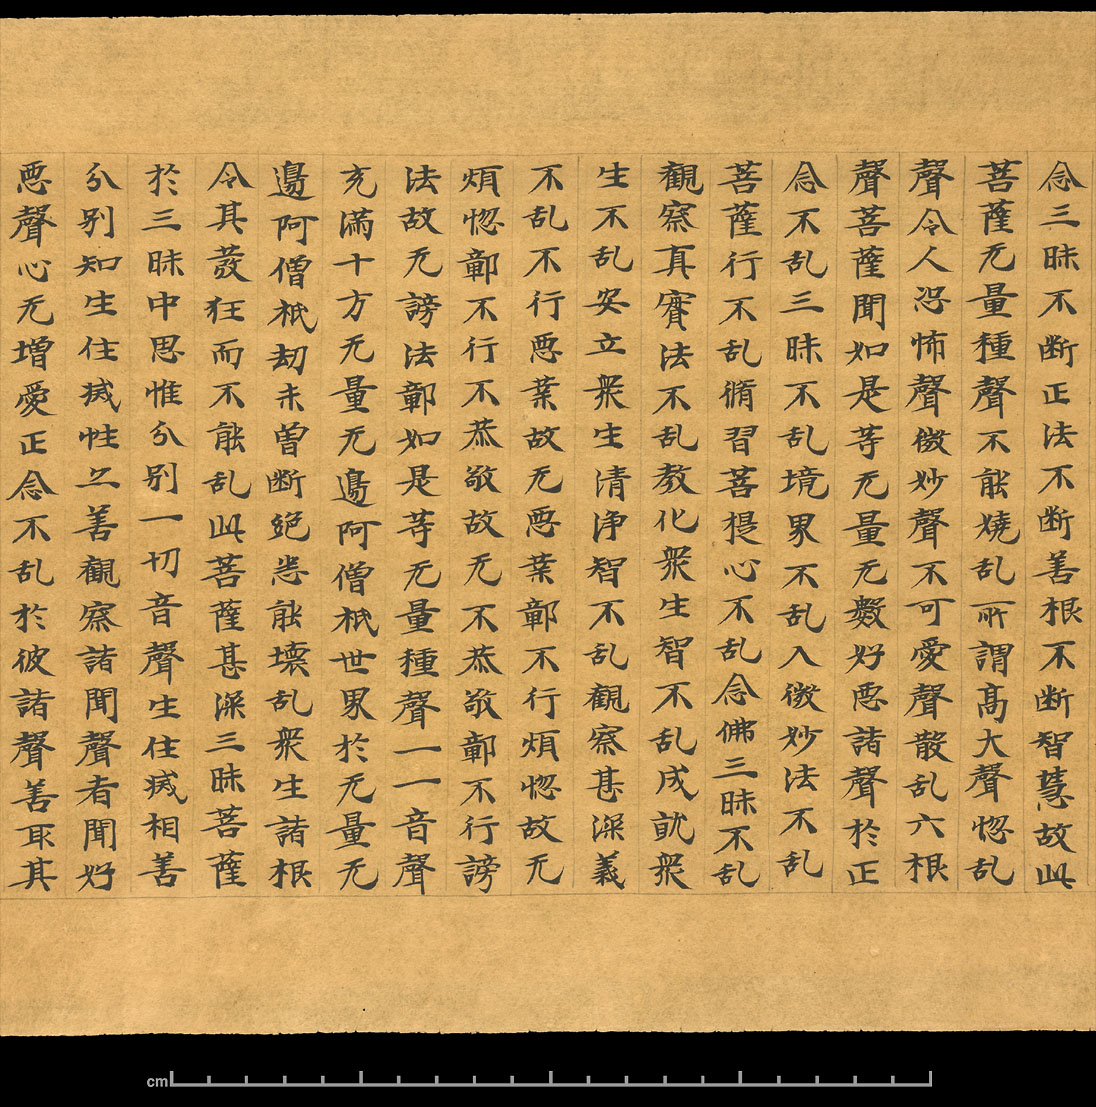 念三昧不断正法不断善根不断智慧故此
菩薩无量種聲不能燒乱所謂高大聲惚乱
聲令人恐怖聲微妙聲不可愛聲散乱六根
聲菩薩聞如是等无量无數好惡諸聲於正
念不乱三昧不乱境界不乱入微妙法不乱
菩薩行不乱脩習菩提心不乱念佛三昧不乱
觀察真實法不乱教化衆生智不乱成就衆
生不乱安立衆生清淨智不乱觀察甚深義
不乱不行惡業故无惡業鄣不行煩惚故无
煩惚鄣不行不恭敬故无不恭敬鄣不行謗
法故无謗法鄣如是等无量種聲一一音聲
充滿十方无量无邊阿僧祇世界於无量无
邊阿僧祇劫未曾断絕悉能壞乱衆生諸根
令其發狂而不能乱此菩薩甚深三昧菩薩
於三昧中思惟分別一切音聲生住滅相善
分別知生住滅性之善觀察諸聞聲者聞好
惡聲心无增愛正念不乱於彼諸聲善取其
cm